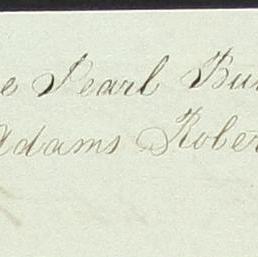 e Pearl Bu
Adams Rober